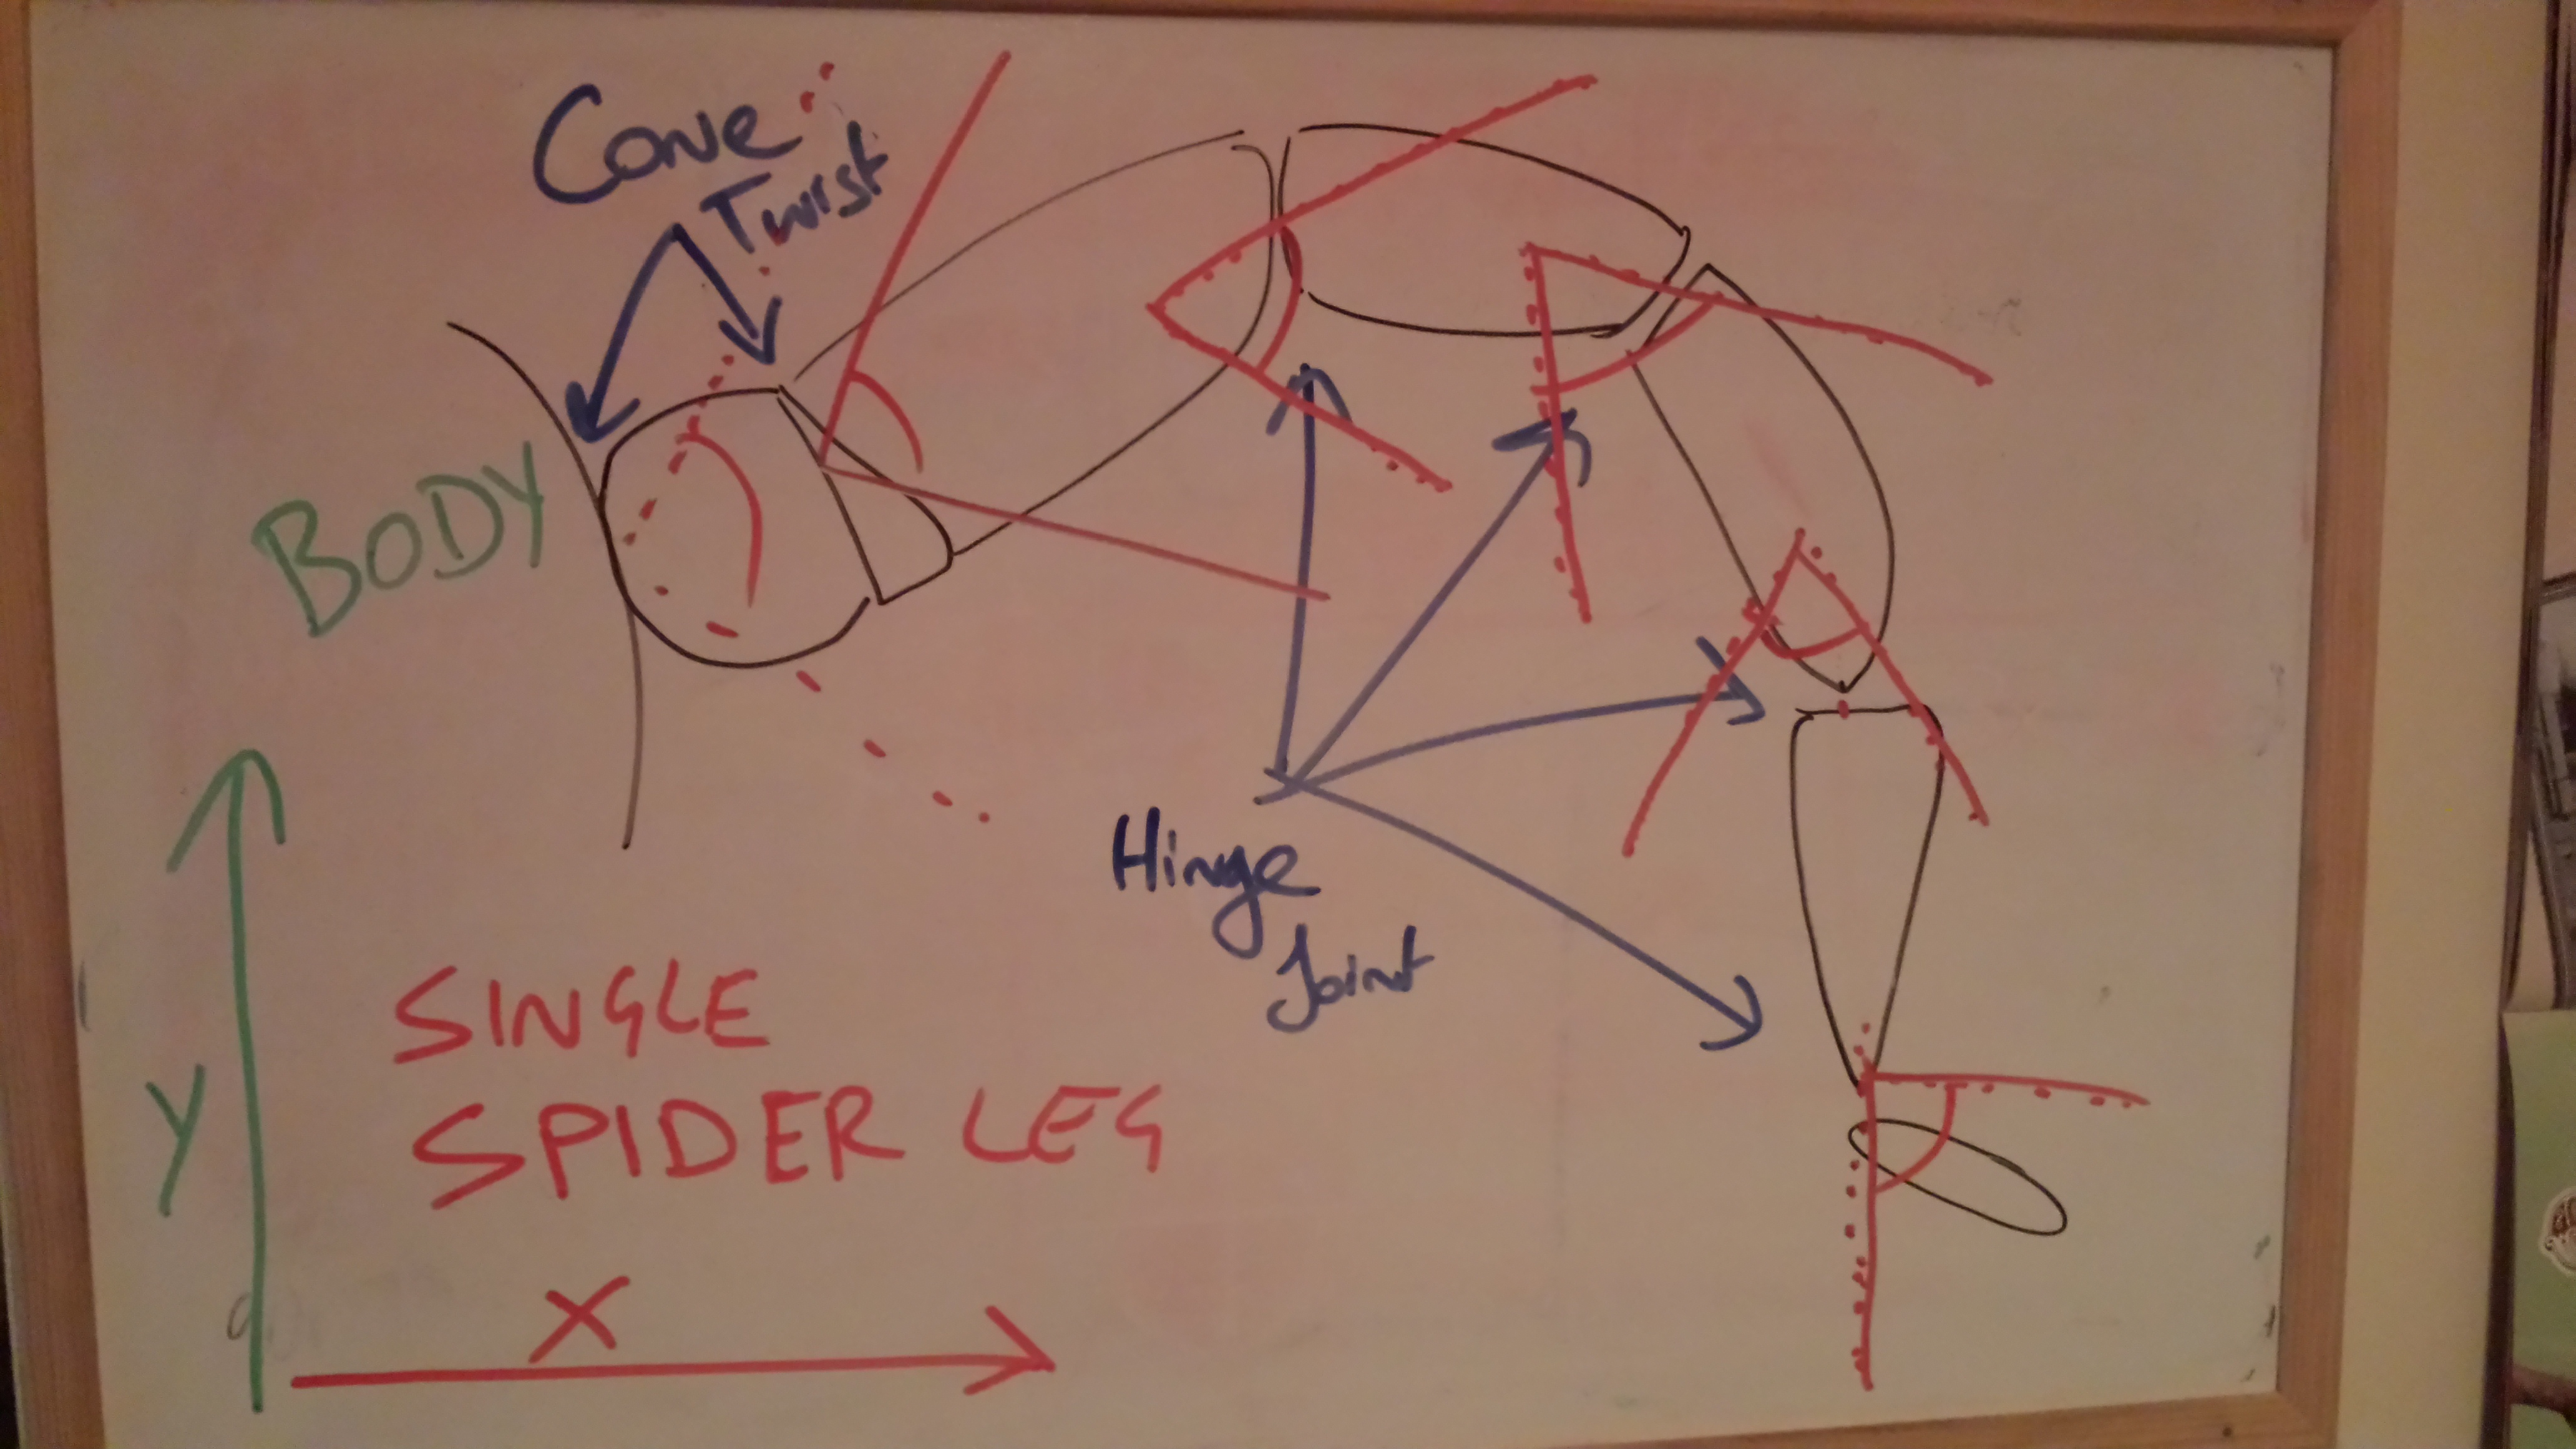 Cone
Twist
BODY
Hinge
Joint
SINGLE
SPIDER LEG
Y
X